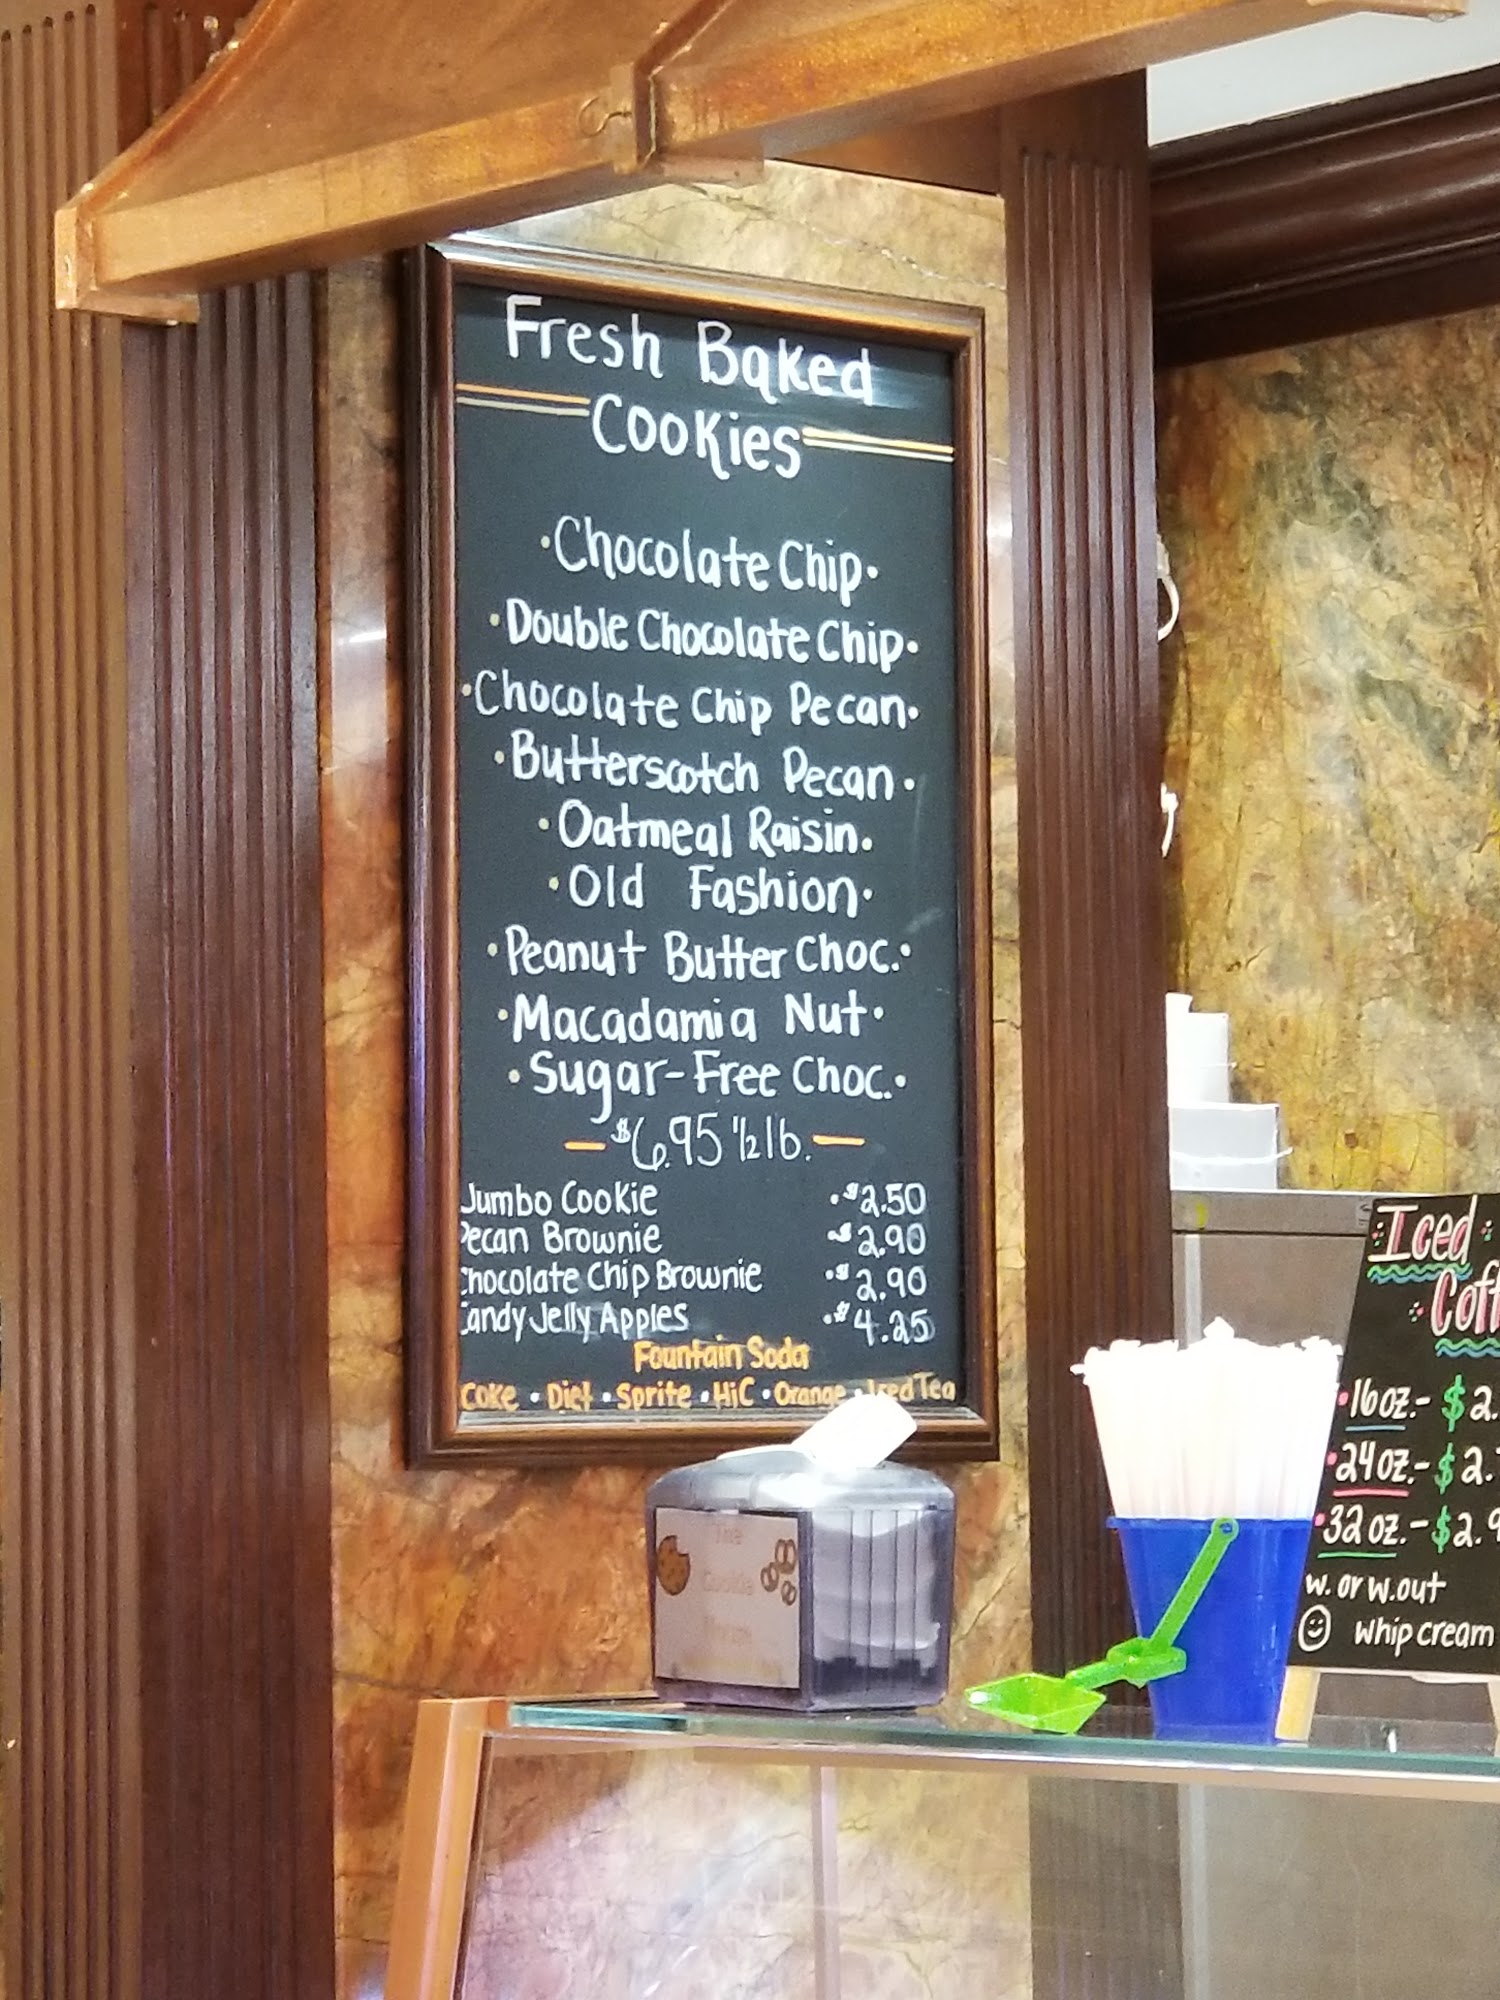 Fresh Baked
Cookies
·Chocolate Chip·
·Double Chocolate Chip·
·Chocolate Chip Pecan·
·Butterscotch Pecan·
·Oatmeal Raisin·
·Old Fashion·
·Peanut Butter Choc.·
·Macadamia Nut·
·Sugar-Free Choc.·
— $6.95 1/2 lb. —
Jumbo Cookie ·$2.50
Pecan Brownie ·$2.90
Chocolate Chip Brownie ·$2.90
Candy Jelly Apples ·$4.25
Fountain Soda
Coke · Diet · Sprite · HiC · Orange · Iced Tea
The
Iced
·16oz.- $2.
·24oz.- $2.
·32oz.- $2.9
w. or w.out
☺ whip cream